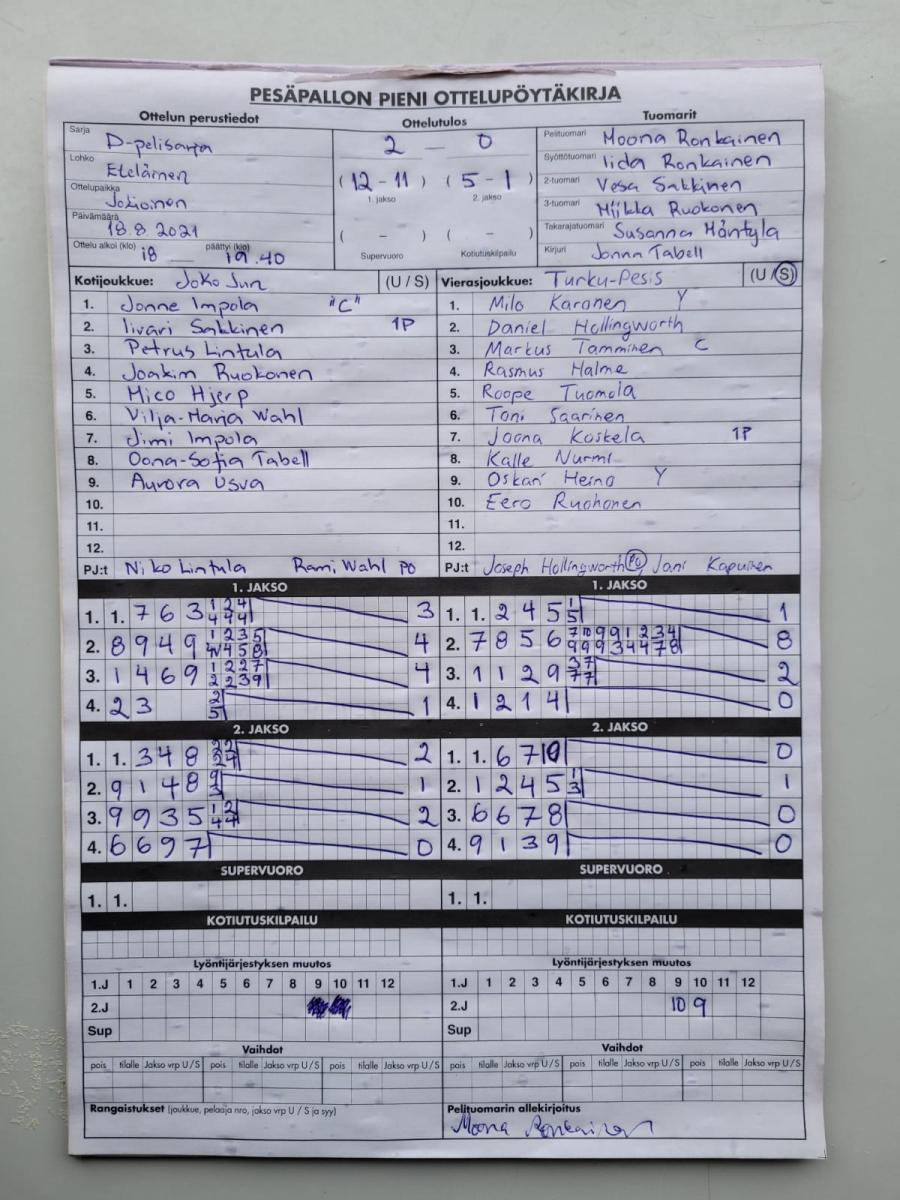 PESÄPALLON PIENI OTTELUPÖYTÄKIRJA
Ottelun perustiedot Ottelutulos Tuomarit
Sarja D-pelisarja
Lohko Eteläinen
Ottelupaikka Jokioinen
Päivämäärä 18.8.2021
Ottelu alkoi (klo) 18 päättyi (klo) 19.40
2 – 0
(12 - 11) (5 - 1)
1. jakso 2. jakso
( – ) ( – )
Supervuoro Kotiutuskilpailu
Pelituomari Moona Ronkainen
Syöttötuomari Iida Ronkainen
2-tuomari Vesa Sakkinen
3-tuomari Miikka Ruokonen
Takarajatuomari Susanna Mäntyla
Kirjuri Jonna Tabell
Kotijoukkue: Joko Jun (U / S)
1. Jonne Impola "C"
2. Iivari Sakkinen 1P
3. Petrus Lintula
4. Joakim Ruokonen
5. Mico Hjerp
6. Vilja-Marja Wahl
7. Jimi Impola
8. Oona-Sofia Tabell
9. Aurora Usva
10.
11.
12.
PJ:t Niko Lintula Rami Wahl PO
Vierasjoukkue: Turku-Pesis (U / S)
1. Milo Karanen Y
2. Daniel Hollingworth
3. Markus Tamminen C
4. Rasmus Halme
5. Roope Tuomola
6. Toni Saarinen
7. Joona Koskela 1P
8. Kalle Nurmi
9. Oskari Heino Y
10. Eero Ruohonen
11.
12.
PJ:t Joseph Hollingworth PO, Jani Kapuinen
1. JAKSO
1. 1. 7 6 3 1 2 4 3
4 4 4
2. 8 9 4 9 1 2 3 5 4
4 5 8
3. 1 4 6 9 1 2 2 7 4
2 2 3 9
4. 2 3 2 1
5
2. JAKSO
1. 1. 3 4 8 2 2 2
2 4
2. 9 1 4 8 9 1
3
3. 9 9 3 5 1 2 2
4 4
4. 6 6 9 7 0
SUPERVUORO
1. 1.
KOTIUTUSKILPAILU
Lyöntijärjestyksen muutos
1.J 1 2 3 4 5 6 7 8 9 10 11 12
2.J
Sup
Vaihdot
pois tilalle Jakso vrp U / S pois tilalle Jakso vrp U / S
Rangaistukset (joukkue, pelaaja nro, jakso vrp U / S ja syy)
1. JAKSO
1. 1. 2 4 5 1 1
5
2. 7 8 5 6 7 10 9 9 1 2 3 4 8
9 9 9 3 4 4 7 8
3. 1 1 2 9 3 7 2
7 7
4. 1 2 1 4 0
2. JAKSO
1. 1. 6 7 10 0
2. 1 2 4 5 1 1
3
3. 6 6 7 8 0
4. 9 1 3 9 0
SUPERVUORO
1. 1.
KOTIUTUSKILPAILU
Lyöntijärjestyksen muutos
1.J 1 2 3 4 5 6 7 8 9 10 11 12
2.J 10 9
Sup
Vaihdot
pois tilalle Jakso vrp U / S pois tilalle Jakso vrp U / S
Pelituomarin allekirjoitus
Moona Ronkainen